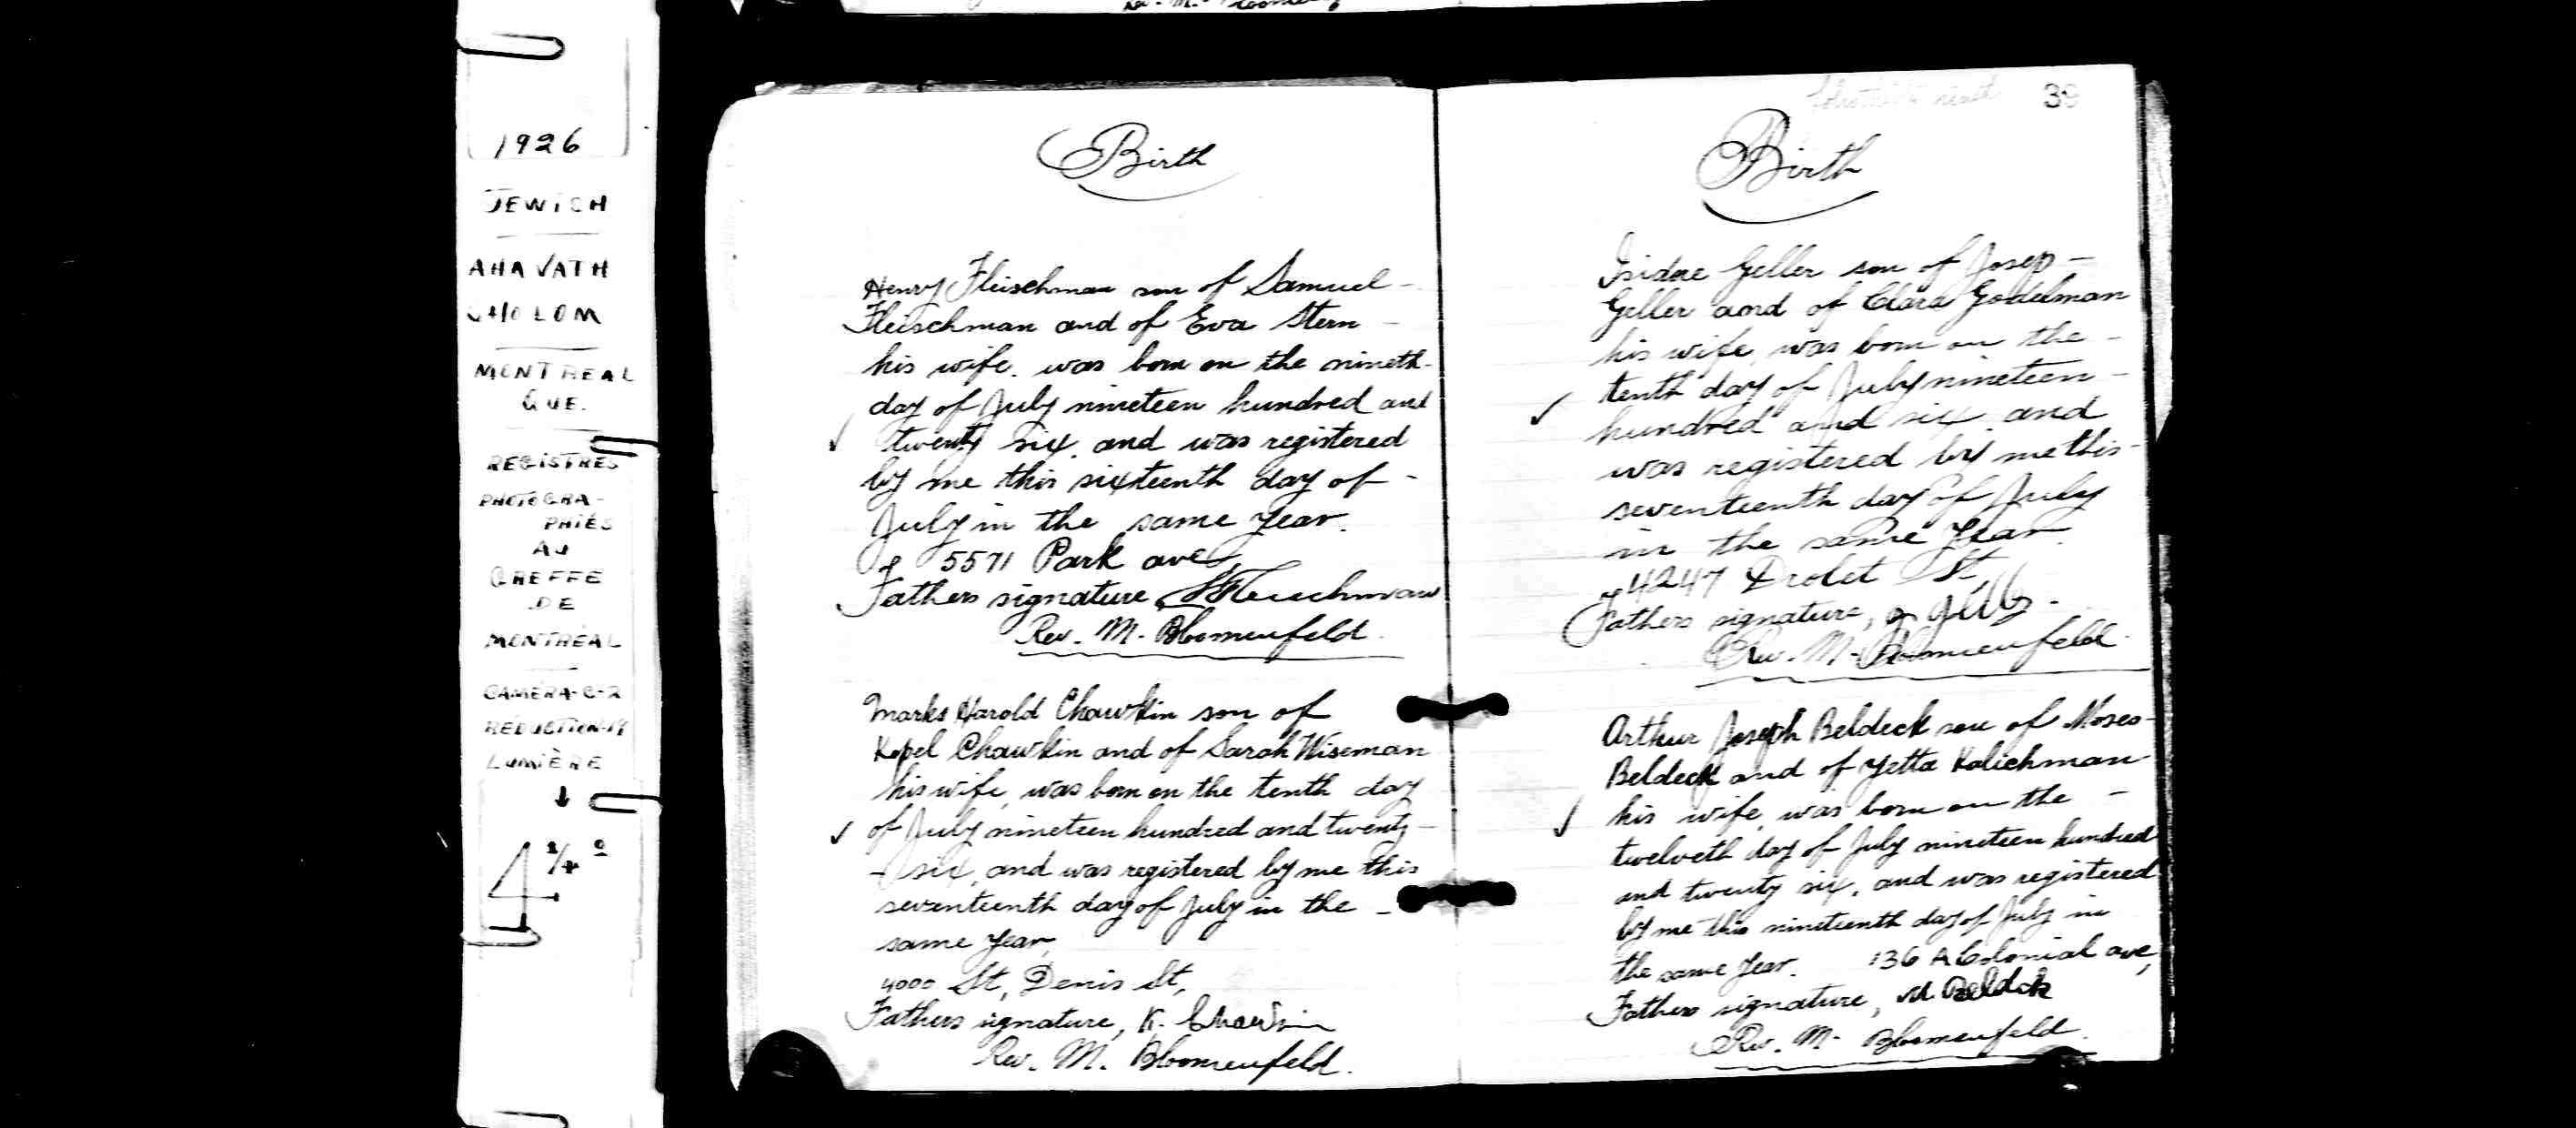 Rev. M. Bloomenfeld
1926
JEWISH
AHAVATH
SHOLOM
MONTREAL
QUE.
REGISTRES
PHOTOGRA-
PHIÉS
AU
GREFFE
DE
MONTRÉAL
CAMÉRA-C-2
RÉDUCTION-19
LUMIÈRE
4 1/4 º
Birth
Henry Fleischman son of Samuel -
Fleischman and of Eva Stern -
his wife. was born on the nineth-
day of July nineteen hundred and
twenty six. and was registered
by me this sixteenth day of -
July in the same year.
Of 5571 Park ave,
Fathers signature, S Fleischman
Rev. M. Bloomenfeld.
Marks Harold Chawkin son of
Kopel Chawkin and of Sarah Wiseman
his wife, was born on the tenth day
of July nineteen hundred and twenty -
- six, and was registered by me this
seventeenth day of July in the -
same year,
4000 St, Denis St,
Fathers signature, K. Chawkin
Rev. M. Bloomenfeld.
ninth 39
Birth
Isidore Geller son of Josep -
Geller and of Clara Godelman
his wife, was born on the -
tenth day of July nineteen -
hundred and six. and
was registered by me this -
seventeenth day of July
in the same year.
of 4247 Drolet St,
Fathers signature,
Rev. M. Bloomenfeld.
Arthur Joseph Beldeck son of Moses -
Beldeck and of Yetta Kolichman
his wife, was born on the -
twelveth day of July nineteen hundred
and twenty six. and was registered
by me this nineteenth day of July in
the same year. 136 A Colonial ave,
Fathers signature, M. Beldck
Rev. M. Bloomenfeld.